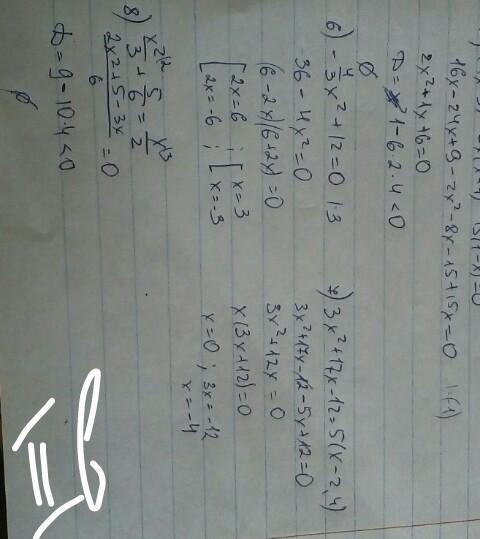 16x-24x+9-2x²-8x-15+15x=0 |·(1)
2x²+1x+6=0
D=1-6·2·4<0
∅
6) -4/3x²+12=0 |·3
36-4x²=0
(6-2x)(6+2x)=0
[2x=6 ; [x=3
[2x=-6 ; [x=-3
7) 3x²+17x-12=5(x-2,4)
3x²+17x-12-5x+12=0
3x²+12x=0
x(3x+12)=0
x=0 ; 3x=-12
x=-4
8) x²/3 + 5/6 = x/2
(2x²+5-3x)/6=0
D=9-10·4<0
∅